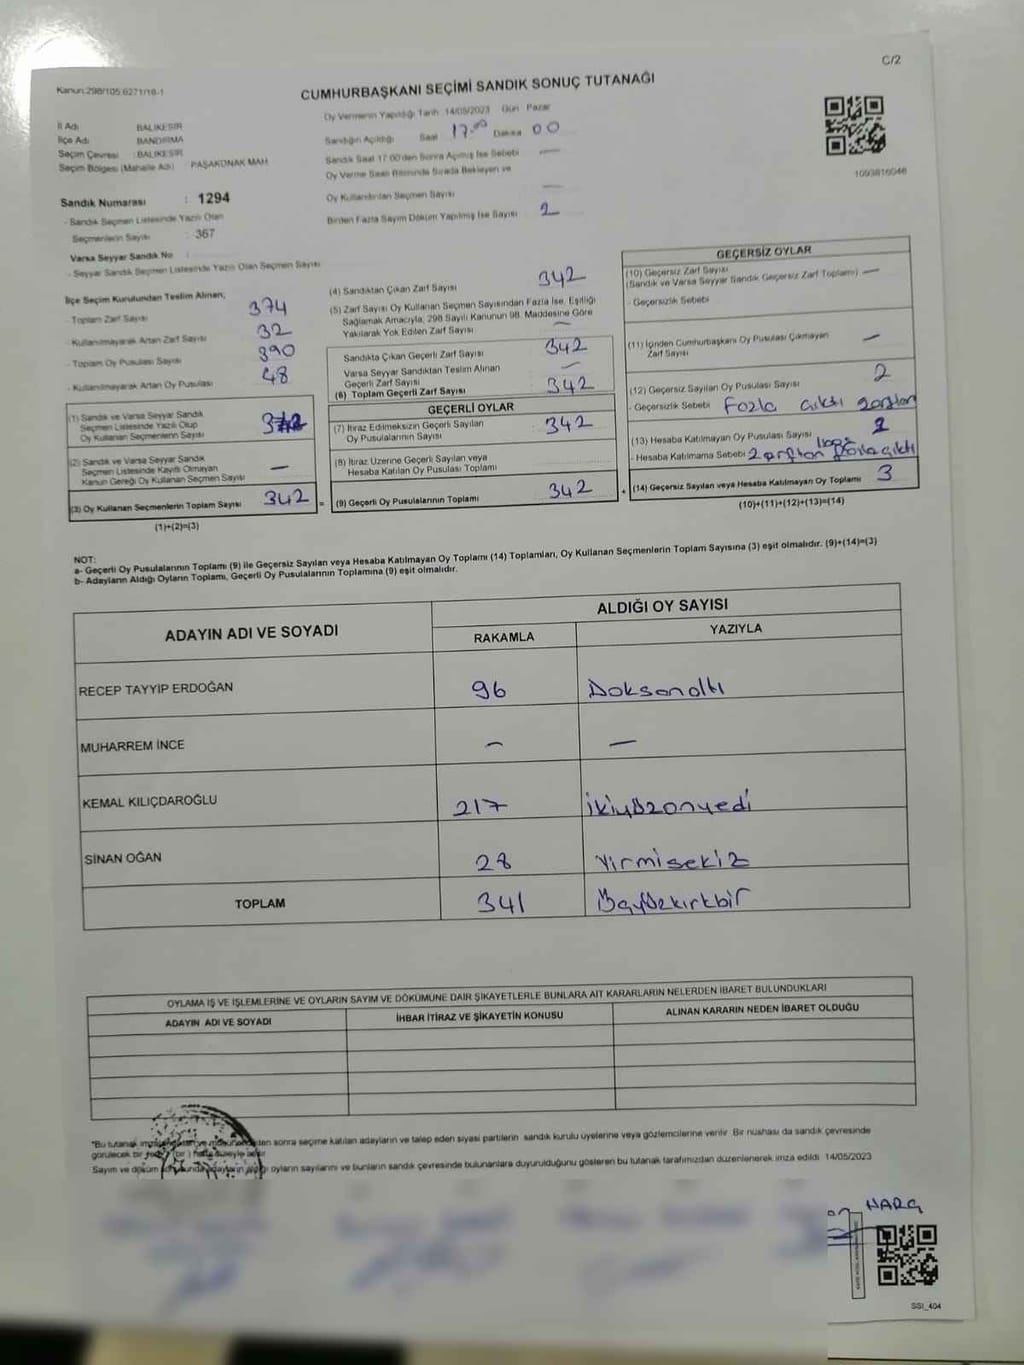 C/2
Kanun:298/105.6271/18-1
CUMHURBAŞKANI SEÇİMİ SANDIK SONUÇ TUTANAĞI
İl Adı BALIKESİR
İlçe Adı BANDIRMA
Seçim Çevresi : BALIKESİR
Seçim Bölgesi (Mahalle Adı) : PAŞAKONAK MAH
Sandık Numarası : 1294
- Sandık Seçmen Listesinde Yazılı Olan
Seçmenlerin Sayısı : 367
Varsa Seyyar Sandık No :
- Seyyar Sandık Seçmen Listesinde Yazılı Olan Seçmen Sayısı
Oy Vermenin Yapıldığı Tarih 14/05/2023 Gün Pazar
Sandığın Açıldığı Saat 17.00 Dakika 00
Sandık Saat 17:00'den Sonra Açılmış İse Sebebi —
Oy Verme Saati Bitiminde Sırada Bekleyen ve
Oy Kullandırılan Seçmen Sayısı —
Birden Fazla Sayım Döküm Yapılmış İse Sayısı 2
1093816046
İlçe Seçim Kurulundan Teslim Alınan;
- Toplam Zarf Sayısı 374
- Kullanılmayarak Artan Zarf Sayısı 32
- Toplam Oy Pusulası Sayısı 390
- Kullanılmayarak Artan Oy Pusulası 48
(1) Sandık ve Varsa Seyyar Sandık
Seçmen Listesinde Yazılı Olup
Oy Kullanan Seçmenlerin Sayısı
(2) Sandık ve Varsa Seyyar Sandık
Seçmen Listesinde Kayıtlı Olmayan
Kanun Gereği Oy Kullanan Seçmen Sayısı —
(3) Oy Kullanan Seçmenlerin Toplam Sayısı 342 =
(1)+(2)=(3)
(4) Sandıktan Çıkan Zarf Sayısı 342
(5) Zarf Sayısı Oy Kullanan Seçmen Sayısından Fazla İse, Eşitliği
Sağlamak Amacıyla, 298 Sayılı Kanunun 98. Maddesine Göre
Yakılarak Yok Edilen Zarf Sayısı —
Sandıkta Çıkan Geçerli Zarf Sayısı 342
Varsa Seyyar Sandıktan Teslim Alınan
Geçerli Zarf Sayısı —
(6) Toplam Geçerli Zarf Sayısı 342
GEÇERLİ OYLAR
(7) İtiraz Edilmeksizin Geçerli Sayılan
Oy Pusulalarının Sayısı 342
(8) İtiraz Üzerine Geçerli Sayılan veya
Hesaba Katılan Oy Pusulası Toplamı
(9) Geçerli Oy Pusulalarının Toplamı 342 +
GEÇERSİZ OYLAR
(10) Geçersiz Zarf Sayısı
(Sandık ve Varsa Seyyar Sandık Geçersiz Zarf Toplamı) —
- Geçersizlik Sebebi
(11) İçinden Cumhurbaşkanı Oy Pusulası Çıkmayan
Zarf Sayısı —
(12) Geçersiz Sayılan Oy Pusulası Sayısı 2
- Geçersizlik Sebebi Fazla çıktı zarftan
(13) Hesaba Katılmayan Oy Pusulası Sayısı
- Hesaba Katılmama Sebebi fazla çıktı
(14) Geçersiz Sayılan veya Hesaba Katılmayan Oy Toplamı 3
(10)+(11)+(12)+(13)=(14)
NOT:
a- Geçerli Oy Pusulalarının Toplamı (9) ile Geçersiz Sayılan veya Hesaba Katılmayan Oy Toplamı (14) Toplamları, Oy Kullanan Seçmenlerin Toplam Sayısına (3) eşit olmalıdır. (9)+(14)=(3)
b- Adayların Aldığı Oyların Toplamı, Geçerli Oy Pusulalarının Toplamına (9) eşit olmalıdır.
ADAYIN ADI VE SOYADI ALDIĞI OY SAYISI
RAKAMLA YAZIYLA
RECEP TAYYİP ERDOĞAN 96 Doksanaltı
MUHARREM İNCE — —
KEMAL KILIÇDAROĞLU 217 İkiyüzonyedi
SİNAN OĞAN 28 Yirmisekiz
TOPLAM 341 Üçyüzkırkbir
OYLAMA İŞ VE İŞLEMLERİNE VE OYLARIN SAYIM VE DÖKÜMÜNE DAİR ŞİKAYETLERLE BUNLARA AİT KARARLARIN NELERDEN İBARET BULUNDUKLARI
ADAYIN ADI VE SOYADI İHBAR İTİRAZ VE ŞİKAYETİN KONUSU ALINAN KARARIN NEDEN İBARET OLDUĞU
*Bu tutanak sonra seçime katılan adayların ve talep eden siyasi partilerin sandık kurulu üyelerine veya gözlemcilerine verilir. Bir nüshası da sandık çevresinde
görülecek bir
Sayım ve döküm oyların sayılarını ve bunların sandık çevresinde bulunanlara duyurulduğunu gösteren bu tutanak tarafımızdan düzenlenerek imza edildi. 14/05/2023
SSI_404